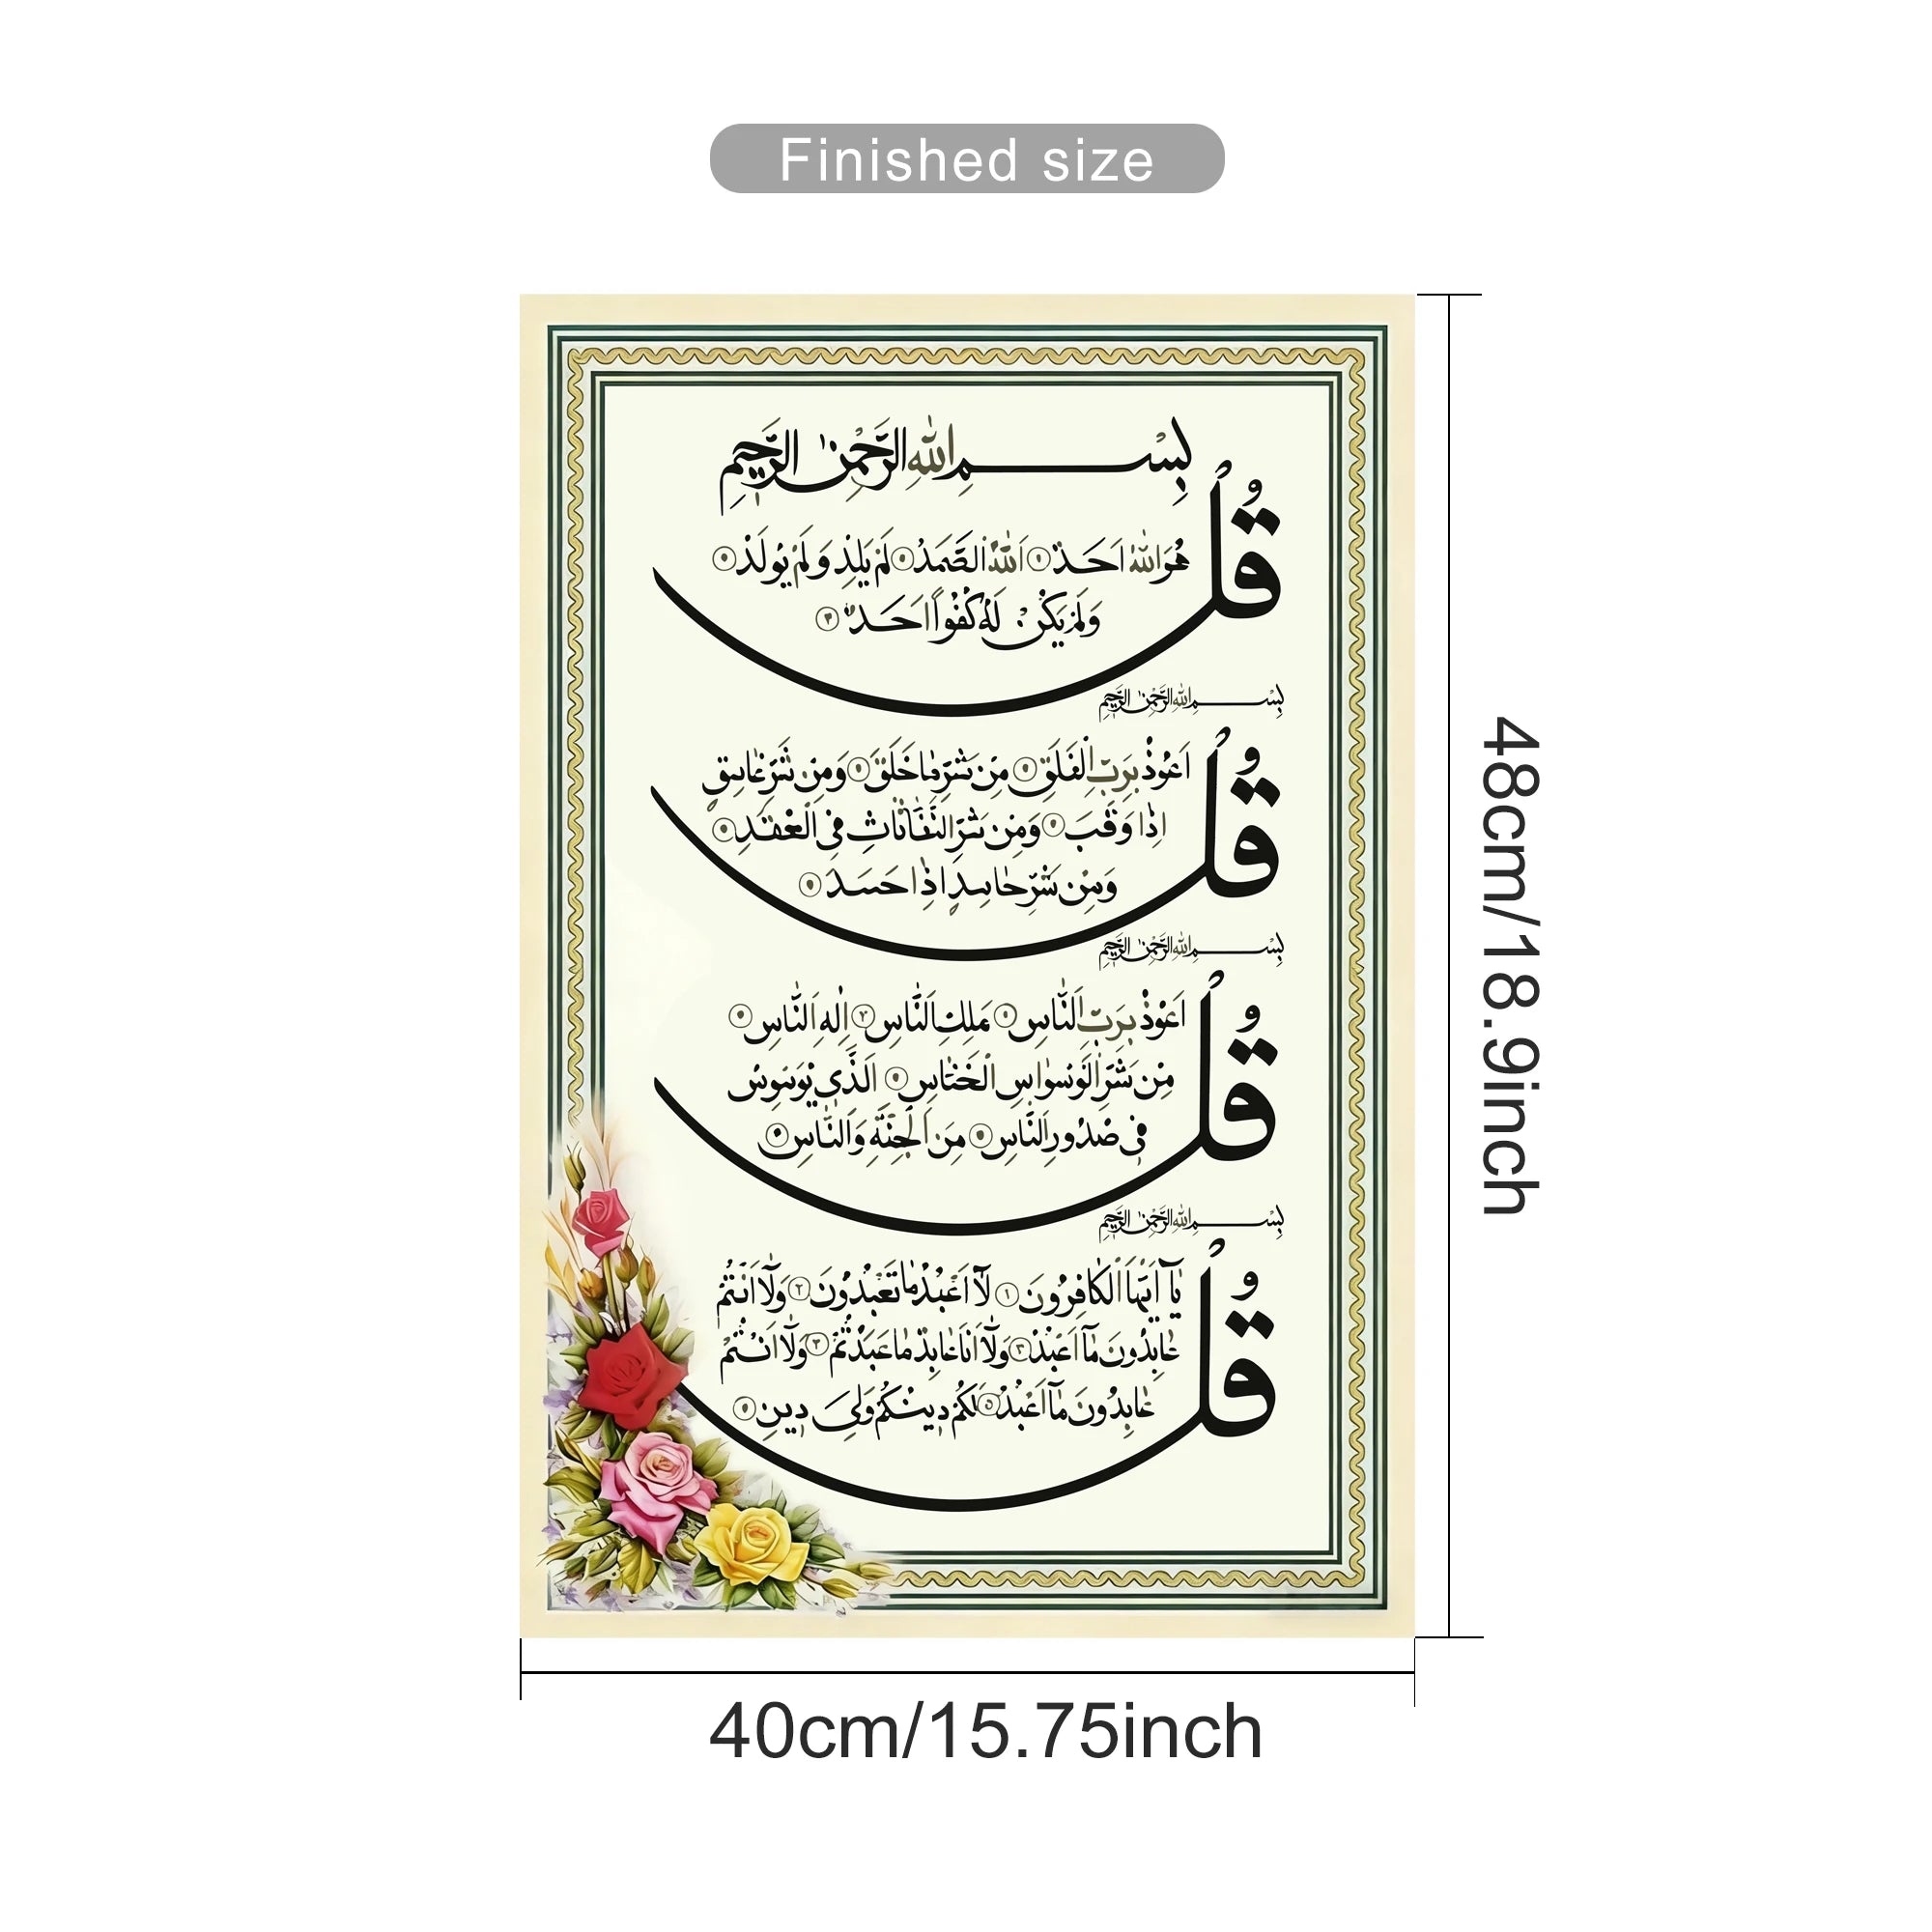 Finished size
بِسْمِ اللهِ الرَّحْمٰنِ الرَّحِيمِ
قُلْ
هُوَ اللهُ اَحَدٌ ١ اَللهُ الصَّمَدُ لَمْ يَلِدْ وَلَمْ يُولَدْ
وَلَمْ يَكُنْ لَهُ كُفُوًا اَحَدٌ
بِسْمِ اللهِ الرَّحْمٰنِ الرَّحِيمِ
قُلْ
اَعُوذُ بِرَبِّ الْفَلَقِ مِنْ شَرِّ مَا خَلَقَ وَمِنْ شَرِّ غَاسِقٍ
اِذَا وَقَبَ وَمِنْ شَرِّ النَّفَّاثَاتِ فِي الْعُقَدِ
وَمِنْ شَرِّ حَاسِدٍ اِذَا حَسَدَ
بِسْمِ اللهِ الرَّحْمٰنِ الرَّحِيمِ
قُلْ
اَعُوذُ بِرَبِّ النَّاسِ ١ مَلِكِ النَّاسِ ٢ اِلٰهِ النَّاسِ
مِنْ شَرِّ الْوَسْوَاسِ الْخَنَّاسِ اَلَّذِي يُوَسْوِسُ
فِي صُدُورِ النَّاسِ مِنَ الْجِنَّةِ وَالنَّاسِ
بِسْمِ اللهِ الرَّحْمٰنِ الرَّحِيمِ
قُلْ
يَا اَيُّهَا الْكَافِرُونَ ١ لَا اَعْبُدُ مَا تَعْبُدُونَ ٢ وَلَا اَنْتُمْ
عَابِدُونَ مَا اَعْبُدُ ٣ وَلَا اَنَا عَابِدٌ مَا عَبَدْتُمْ وَلَا اَنْتُمْ
عَابِدُونَ مَا اَعْبُدُ ٥ لَكُمْ دِينُكُمْ وَلِيَ دِينِ
48cm/18.9inch
40cm/15.75inch